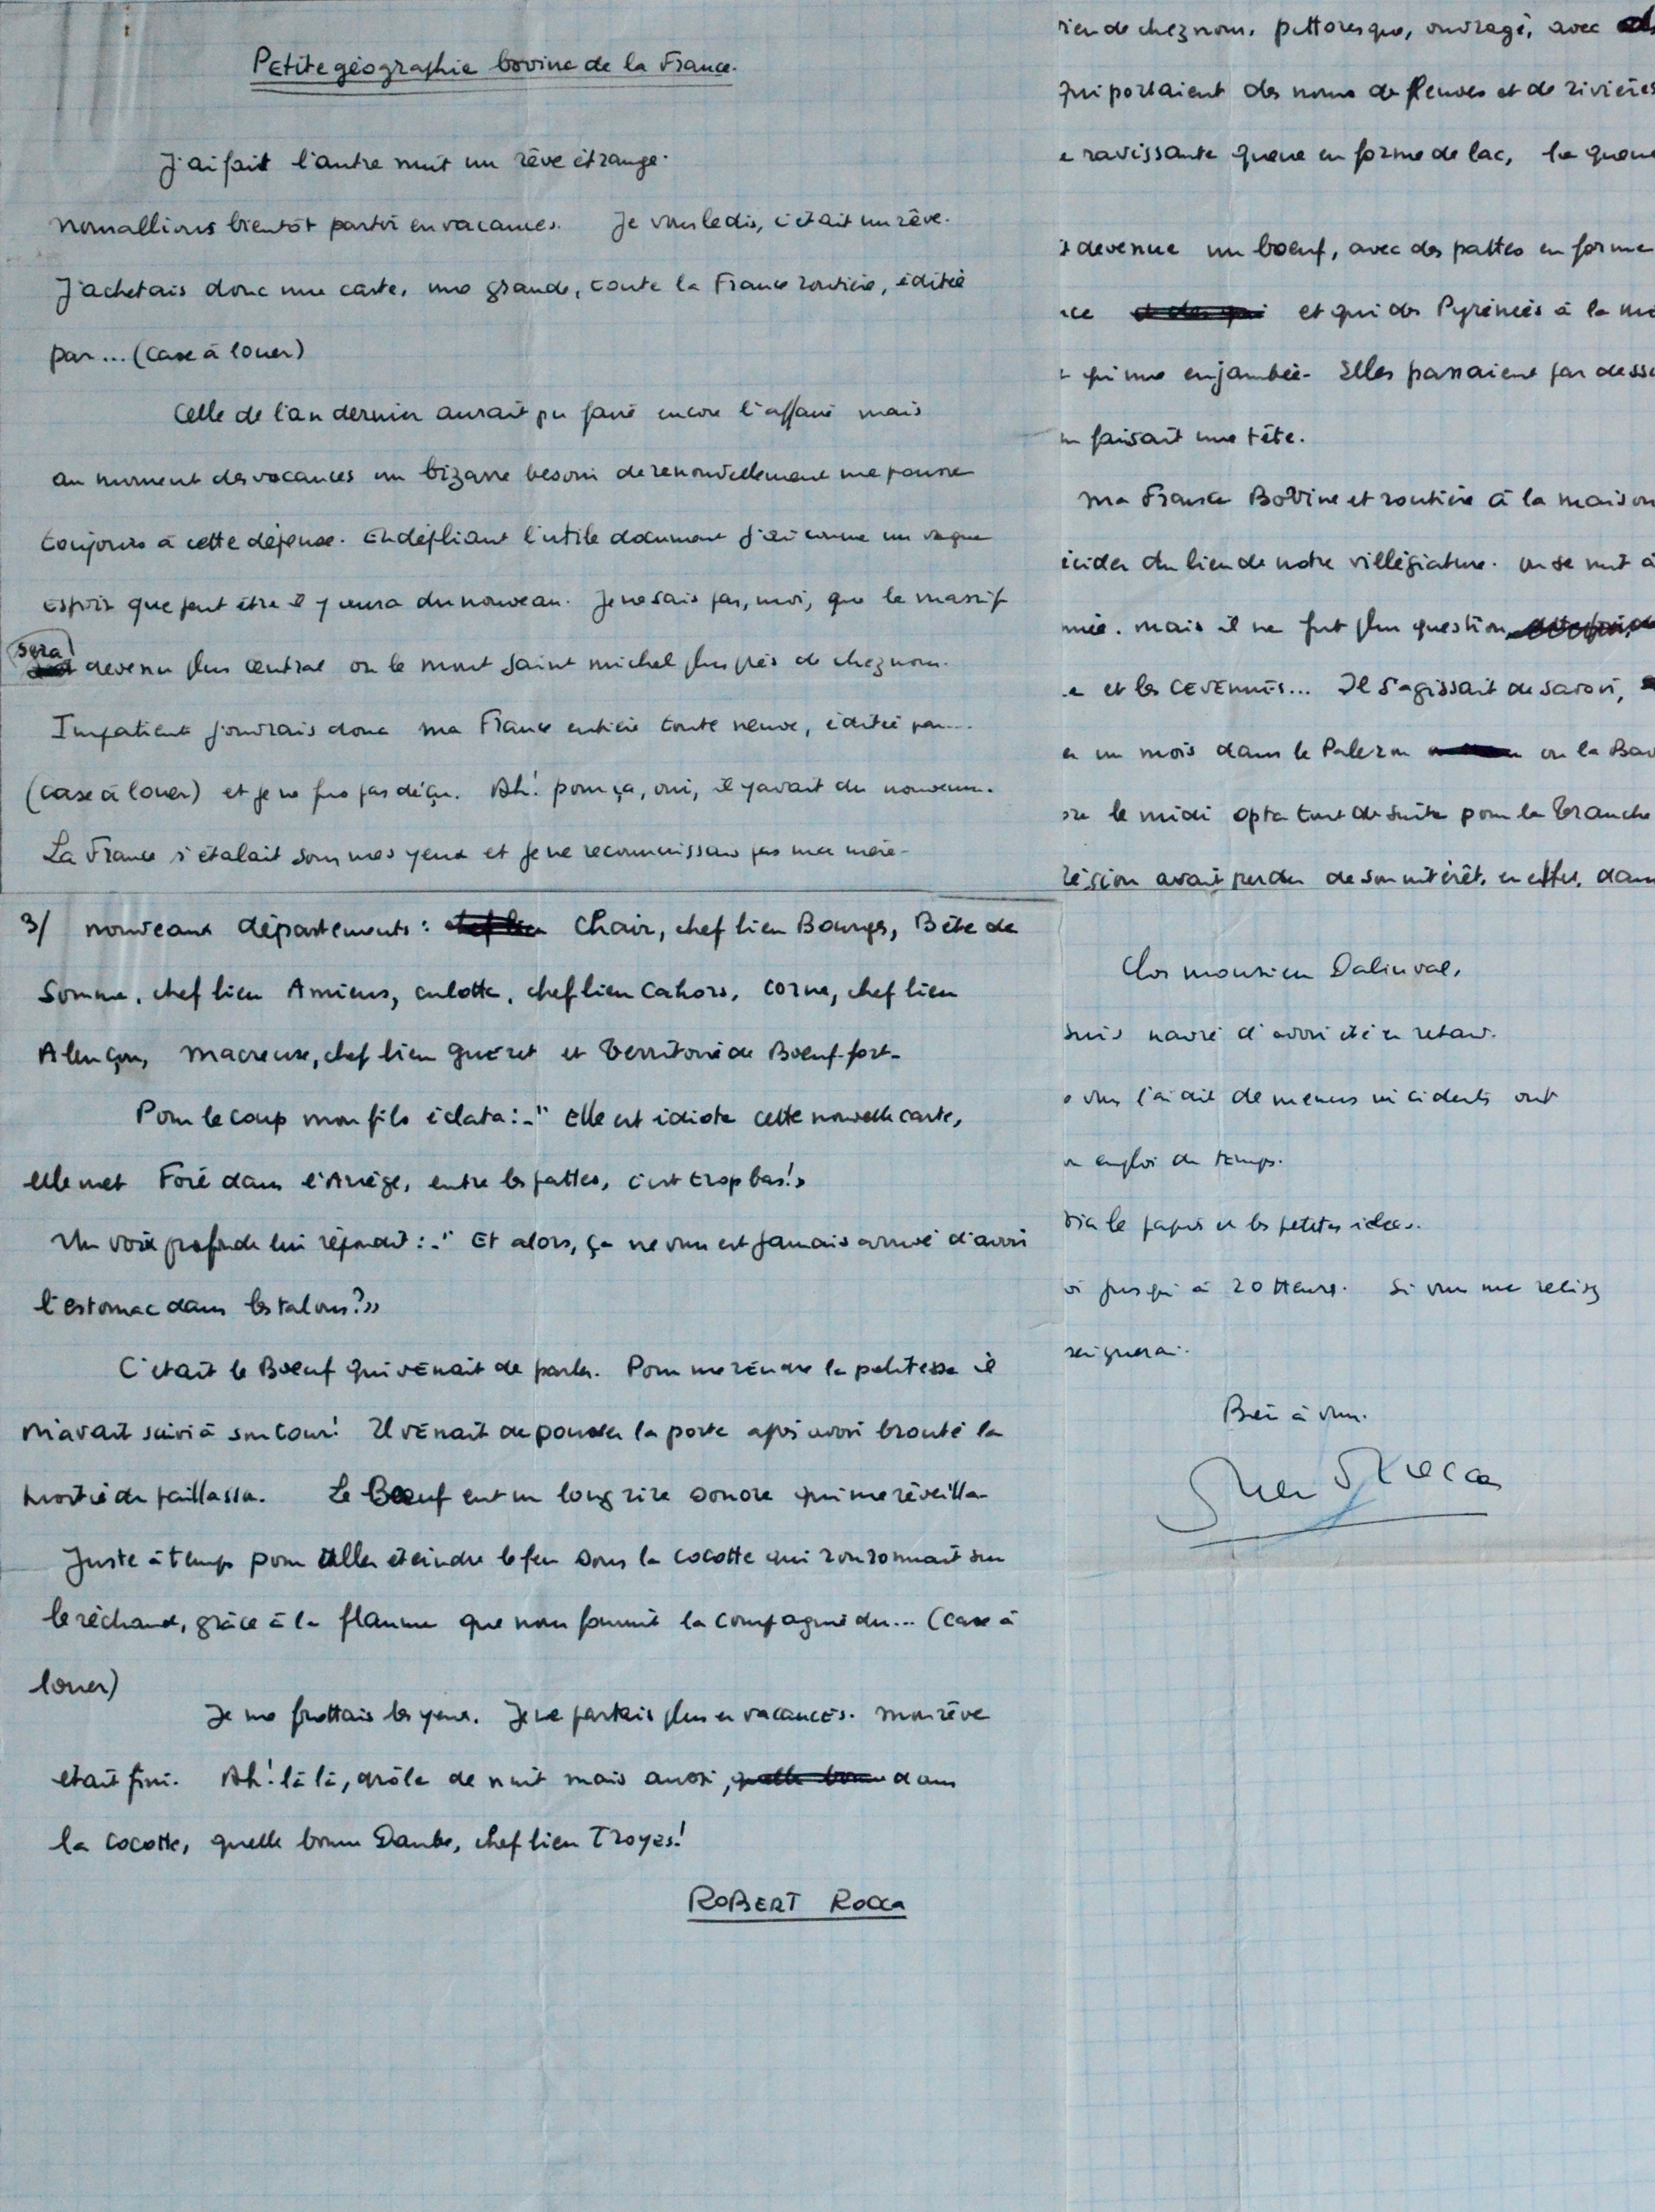 Petite géographie bovine de la France.
J'ai fait l'autre nuit un rêve étrange.
Nous allions bientôt partir en vacances. Je vous le dis, c'était un rêve.
J'achetais donc une carte, une grande, toute la France routière, éditée
par... (case à louer)
Celle de l'an dernier aurait pu faire encore l'affaire mais
au moment des vacances un bizarre besoin de renouvellement me pousse
toujours à cette dépense. En dépliant l'utile document j'ai comme un vague
espoir que peut être il y aura du nouveau. Je ne sais pas, moi, que le massif
sera devenu plus central ou le mont Saint Michel plus près de chez nous.
Impatient j'ouvrais donc ma France entière toute neuve, éditée par....
(case à louer) et je ne fus pas déçu. Ah! pour ça, oui, il y avait du nouveau.
La France s'étalait sous mes yeux et je ne reconnaissais pas ma mère-
3/ nouveaux départements: Chair, chef lieu Bourges, Bête de
Somme, chef lieu Amiens, culotte, chef lieu Cahors, Corne, chef lieu
Alençon, Macreuse, chef lieu Guéret et Territoire de Boeuf-fort-
Pour le coup mon fils éclata:-" Elle est idiote cette nouvelle carte,
elle met Foie dans l'Ariège, entre les pattes, c'est trop bas!»
Une voix profonde lui répondit:-" Et alors, ça ne vous est jamais arrivé d'avoir
l'estomac dans les talons?»
C'était le Boeuf qui venait de parler. Pour me rendre la politesse il
m'avait suivi à son tour! Il venait de pousser la porte après avoir brouté la
moitié du paillasson. Le Boeuf eut un long rire sonore qui me réveilla-
Juste à temps pour aller éteindre le feu sous la cocotte qui ronronnait sur
le réchaud, grâce à la flamme que nous fournit la compagnie du... (case à
louer)
Je me frottais les yeux. Je ne partais plus en vacances. Mon rêve
était fini. Ah! là là, drôle de nuit mais aussi, dans
la cocotte, quelle bonne Daube, chef lieu Troyes!
ROBERT ROCCA
rien de chez nous, pittoresque, ouvragé, avec
qui portaient des noms de fleuves et de rivières
e ravissante queue en forme de lac, la queue
t devenue un boeuf, avec des pattes en forme
nce et qui des Pyrénées à la
t qu'une enjambée- Elles passaient par dess
n faisait une tête.
ma France Bovine et routière à la maison
écider du lieu de notre villégiature. On se mit à
mée. Mais il ne fut plus question
e et les CEVENNES... Il s'agissait de savoir,
er un mois dans le Paleron ou la Bav
ore le midi opta tout de suite pour la Tranche
récision avait perdu de son intérêt, en effet, dans
Cher monsieur Dalinval,
suis navré d'avoir été en retard.
e vous l'ai dit de menus incidents ont
n emploi du temps.
le papier et les petites idées.
i jusqu'à 20 Heures. Si vous me
seignerai.
Bien à vous.